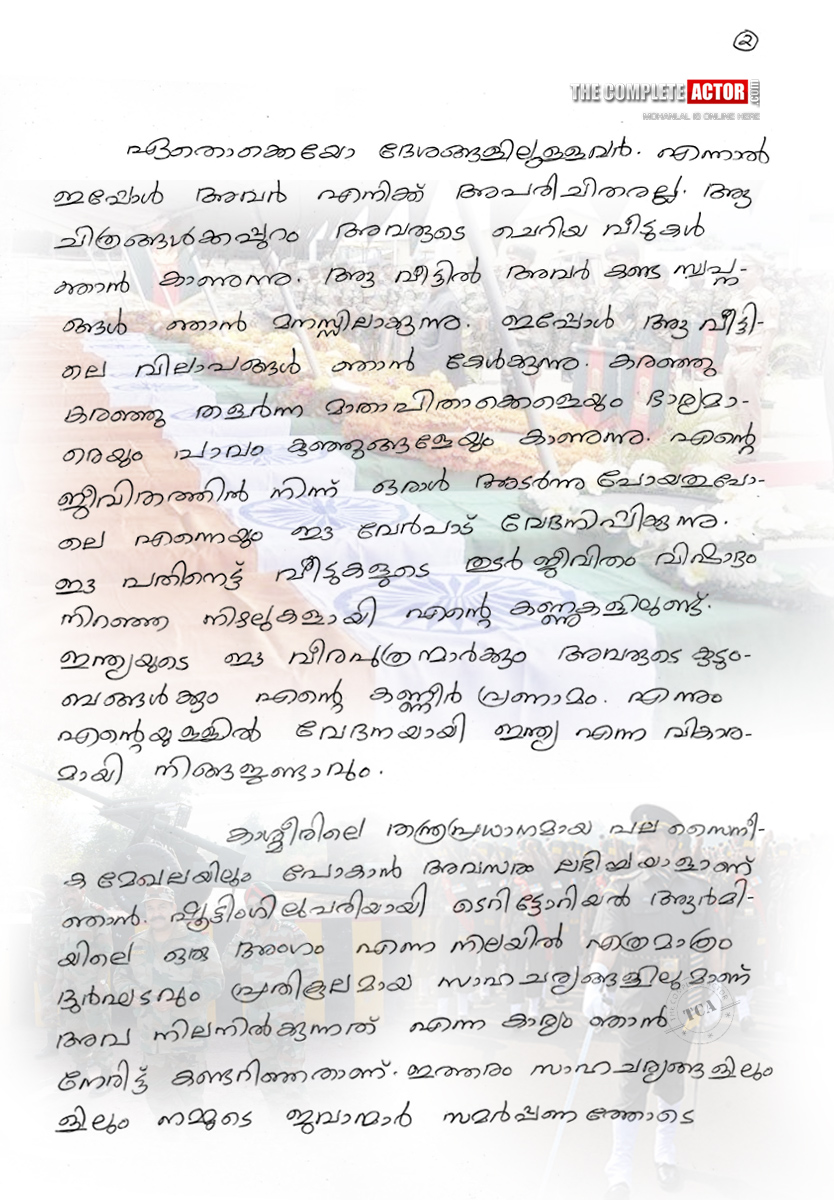 ൨
THE COMPLETE ACTOR .COM
MOHANLAL IS ONLINE HERE
ഏതൊക്കെയോ ദേശങ്ങളിലുള്ളവർ. എന്നാൽ
ഇപ്പോൾ അവർ എനിക്ക് അപരിചിതരല്ല. ആ
ചിത്രങ്ങൾക്കപ്പുറം അവരുടെ ചെറിയ വീടുകൾ
ഞാൻ കാണുന്നു. ആ വീട്ടിൽ അവർ കണ്ട സ്വപ്ന-
ങ്ങൾ ഞാൻ മനസ്സിലാക്കുന്നു. ഇപ്പോൾ ആ വീട്ടി-
ലെ വിലാപങ്ങൾ ഞാൻ കേൾക്കുന്നു. കരഞ്ഞു
കരഞ്ഞു തളർന്ന മാതാപിതാക്കെളെയും ഭാര്യമാ-
രെയും പാവം കുഞ്ഞുങ്ങളേയും കാണുന്നു. എന്റെ
ജീവിതത്തിൽ നിന്ന് ഒരാൾ അടർന്നു പോയതുപോ-
ലെ എന്നെയും ഈ വേർപാട് വേദനിപ്പിക്കുന്നു.
ഈ പതിനെട്ട് വീടുകളുടെ തുടർ ജീവിതം വിഷാദം
നിറഞ്ഞ നിഴലുകളായി എന്റെ കണ്ണുകളിലുണ്ട്.
ഇന്ത്യയുടെ ഈ വീരപുത്രന്മാർക്കും അവരുടെ കുടും-
ബങ്ങൾക്കും എന്റെ കണ്ണീർ പ്രണാമം. എന്നും
എന്റെയുള്ളിൽ വേദനയായി ഇന്ത്യ എന്ന വികാര-
മായി നിങ്ങളുണ്ടാവും.
കാശ്മീരിലെ തന്ത്രപ്രധാനമായ പല സൈനീ-
ക മേഖലയിലും പോകാൻ അവസരം ലഭിച്ചയാളാണ്
ഞാൻ. ഷൂട്ടിംഗിലുപരിയായി ടെറിട്ടോറിയൽ ആർമി-
യിലെ ഒരു അംഗം എന്ന നിലയിൽ എത്രമാത്രം
ദുർഘടവും പ്രതികൂലമായ സാഹചര്യങ്ങളിലുമാണ്
അവ നിലനിൽക്കുന്നത് എന്ന കാര്യം ഞാൻ
TCA
നേരിട്ട് കണ്ടറിഞ്ഞതാണ്. ഇത്തരം സാഹചര്യങ്ങളിലും
ളിലും നമ്മുടെ ജവാന്മാർ സമർപ്പണത്തോടെ